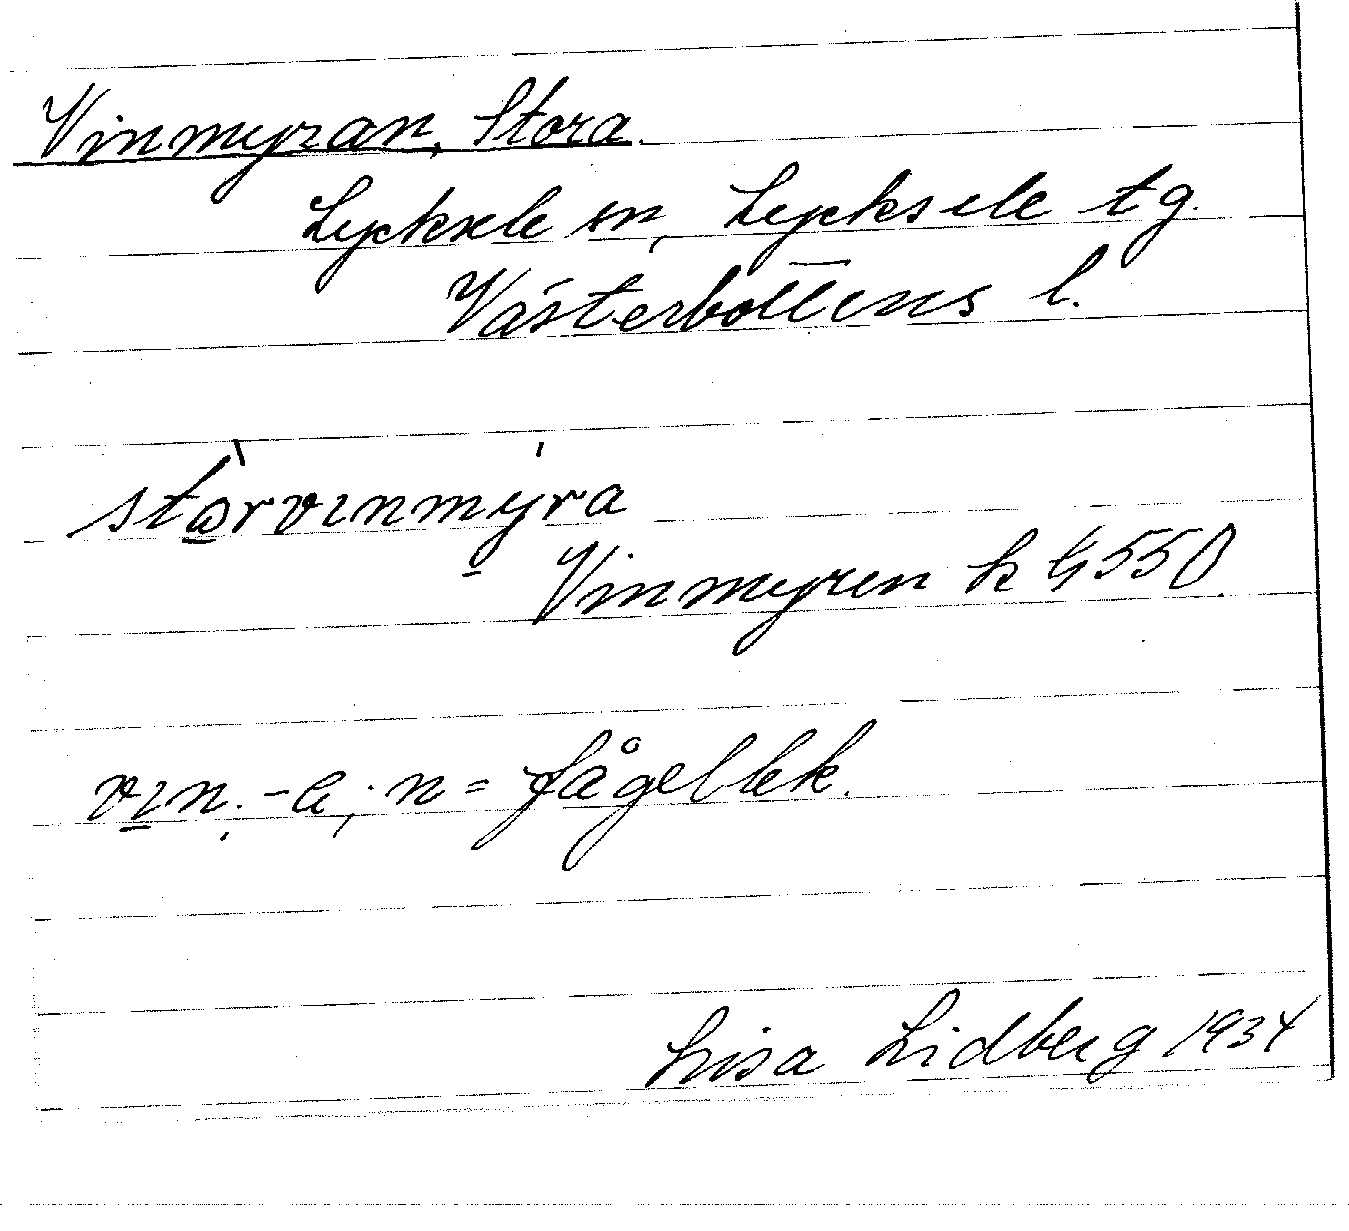 Vinmyran, Stora.
Lycksele sn, Lycksele tg.
Västerbottens l.
stòrvinmýra
Vinmyren k 4550.
vin, -a, n = fågellek.
Lisa Lidberg 1934